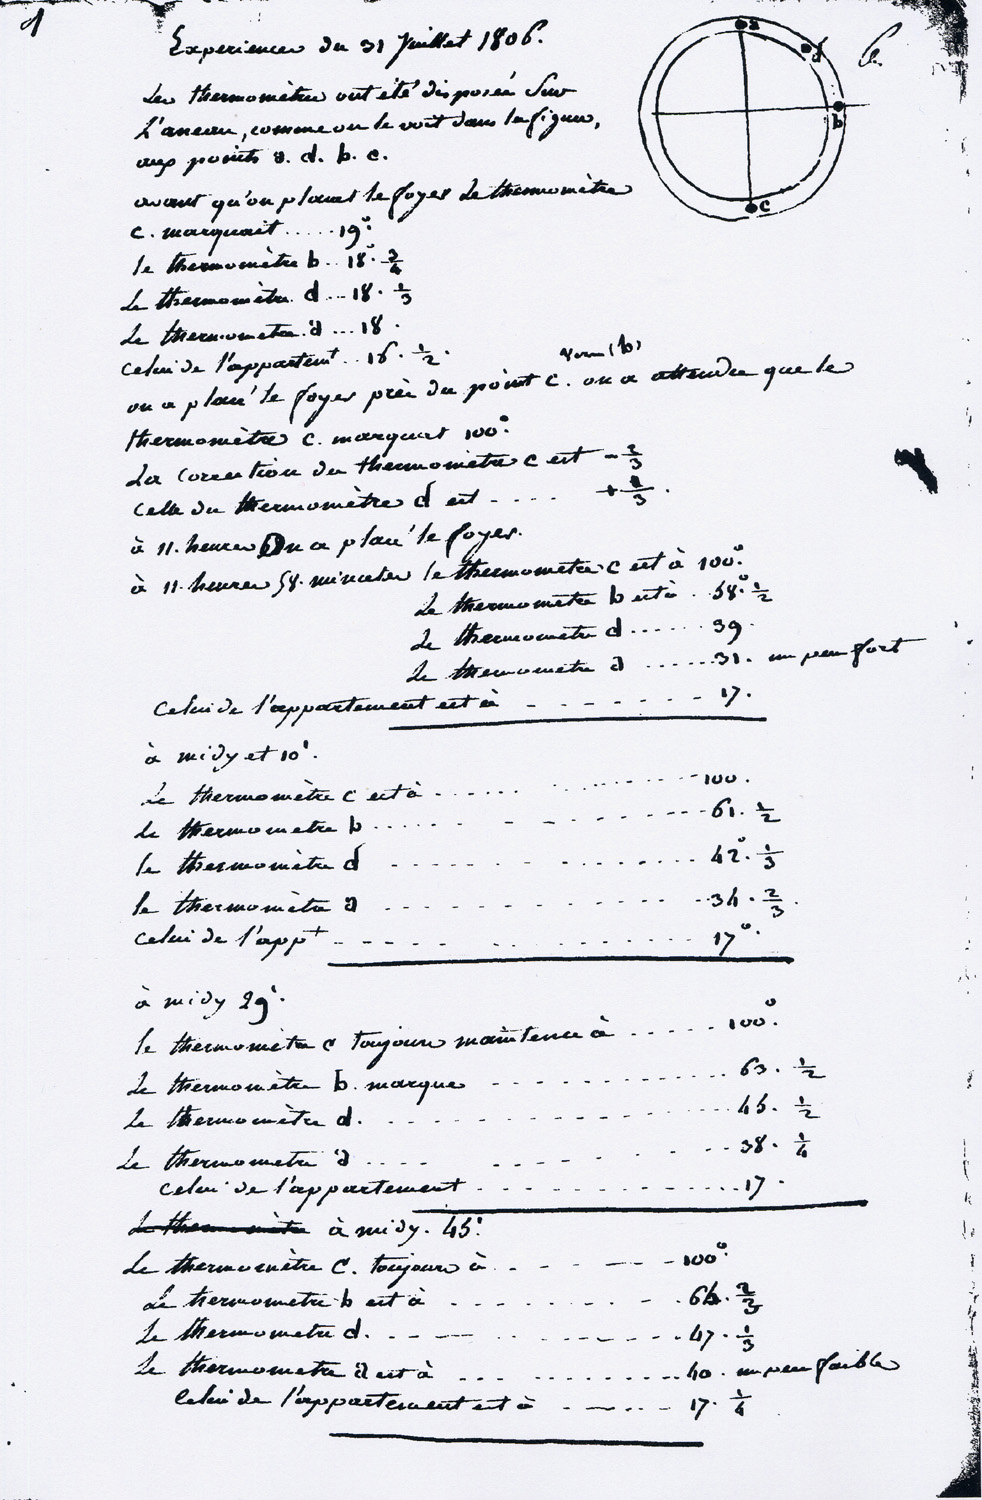 1
Experience du 31 Juillet 1806.
a
d
b
c
6.
Les thermomètres ont été disposés sur
L'aneau, comme on le voit dans la figure,
aux points a. d. b. c.
avant qu'on plaçat le foyer le thermomètre
c. marquait ..... 19°.
le thermomètre b .. 18°. 3/4
Le thermomètre d ... 18. 1/3
Le thermometre a ... 18.
celui de l'appartemt .. 16. 1/2.
vers (b)
on a placé le foyer près du point c. on a attendu que le
thermomètre c. marquat 100°.
La correction du thermomètre c est - 2/3
celle du thermomètre d est .... + 2/3.
à 11. heures on a placé le foyer.
à 11. heures 58. minutes le thermomètre c est à 100°.
Le thermomètre b est à . 58°. 1/2
Le thermomètre d ...... 39.
Le thermomètre a ...... 31. un peu fort
celui de l'appartement est à ------- 17.
à midy et 10'.
Le thermomètre c est à ........ 100.
Le thermometre b ........ 61. 1/2
le thermomètre d ........ 42°. 1/3
le thermomètre a ........ 34. 2/3.
celui de l'appt ........ 17°.
à midy 29'.
le thermomètre c toujours maintenu à ..... 100°.
Le thermomètre b. marque ........ 63. 1/2
Le thermomètre d. ........ 45. 1/2
Le thermometre a .... ........ 38. 1/4
celui de l'appartement ........ 17.
Le thermomètre à midy. 45'.
Le thermomètre c. toujours à ..----- 100°.
Le thermometre b est à ........ 64. 2/3
Le thermometre d. ........ 47. 1/3
Le thermometre a est à ........ 40. un peu faible
Celui de l'appartement est à ------ 17. 1/4